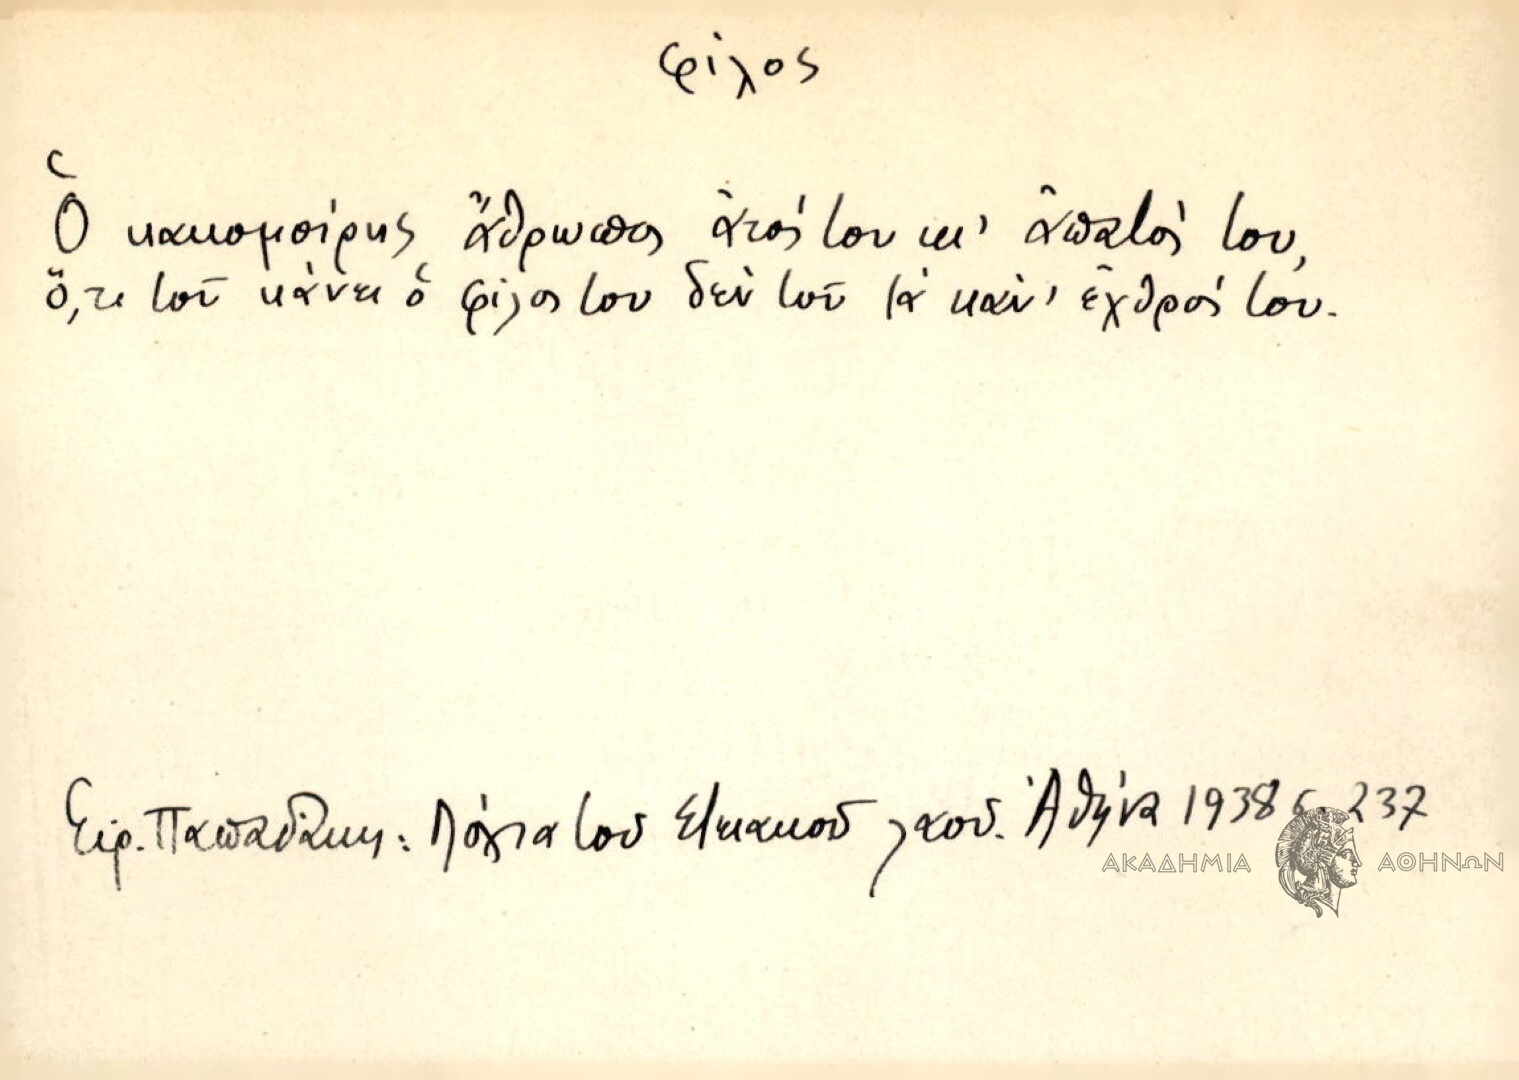 φίλος
Ὁ κακομοίρης ἄθρωπος ἀτός του κι' ἀπατός του,
ὅ,τι τοῦ κάνει ὁ φίλος του δὲν τοῦ τὰ κάν' ἐχθρός του.
Εἰρ. Παπαδάκη: Λόγια τοῦ Στειακοῦ λαοῦ. Ἀθήνα 1938 σ. 237
ΑΚΑΔΗΜΙΑ ΑΘΗΝΩΝ